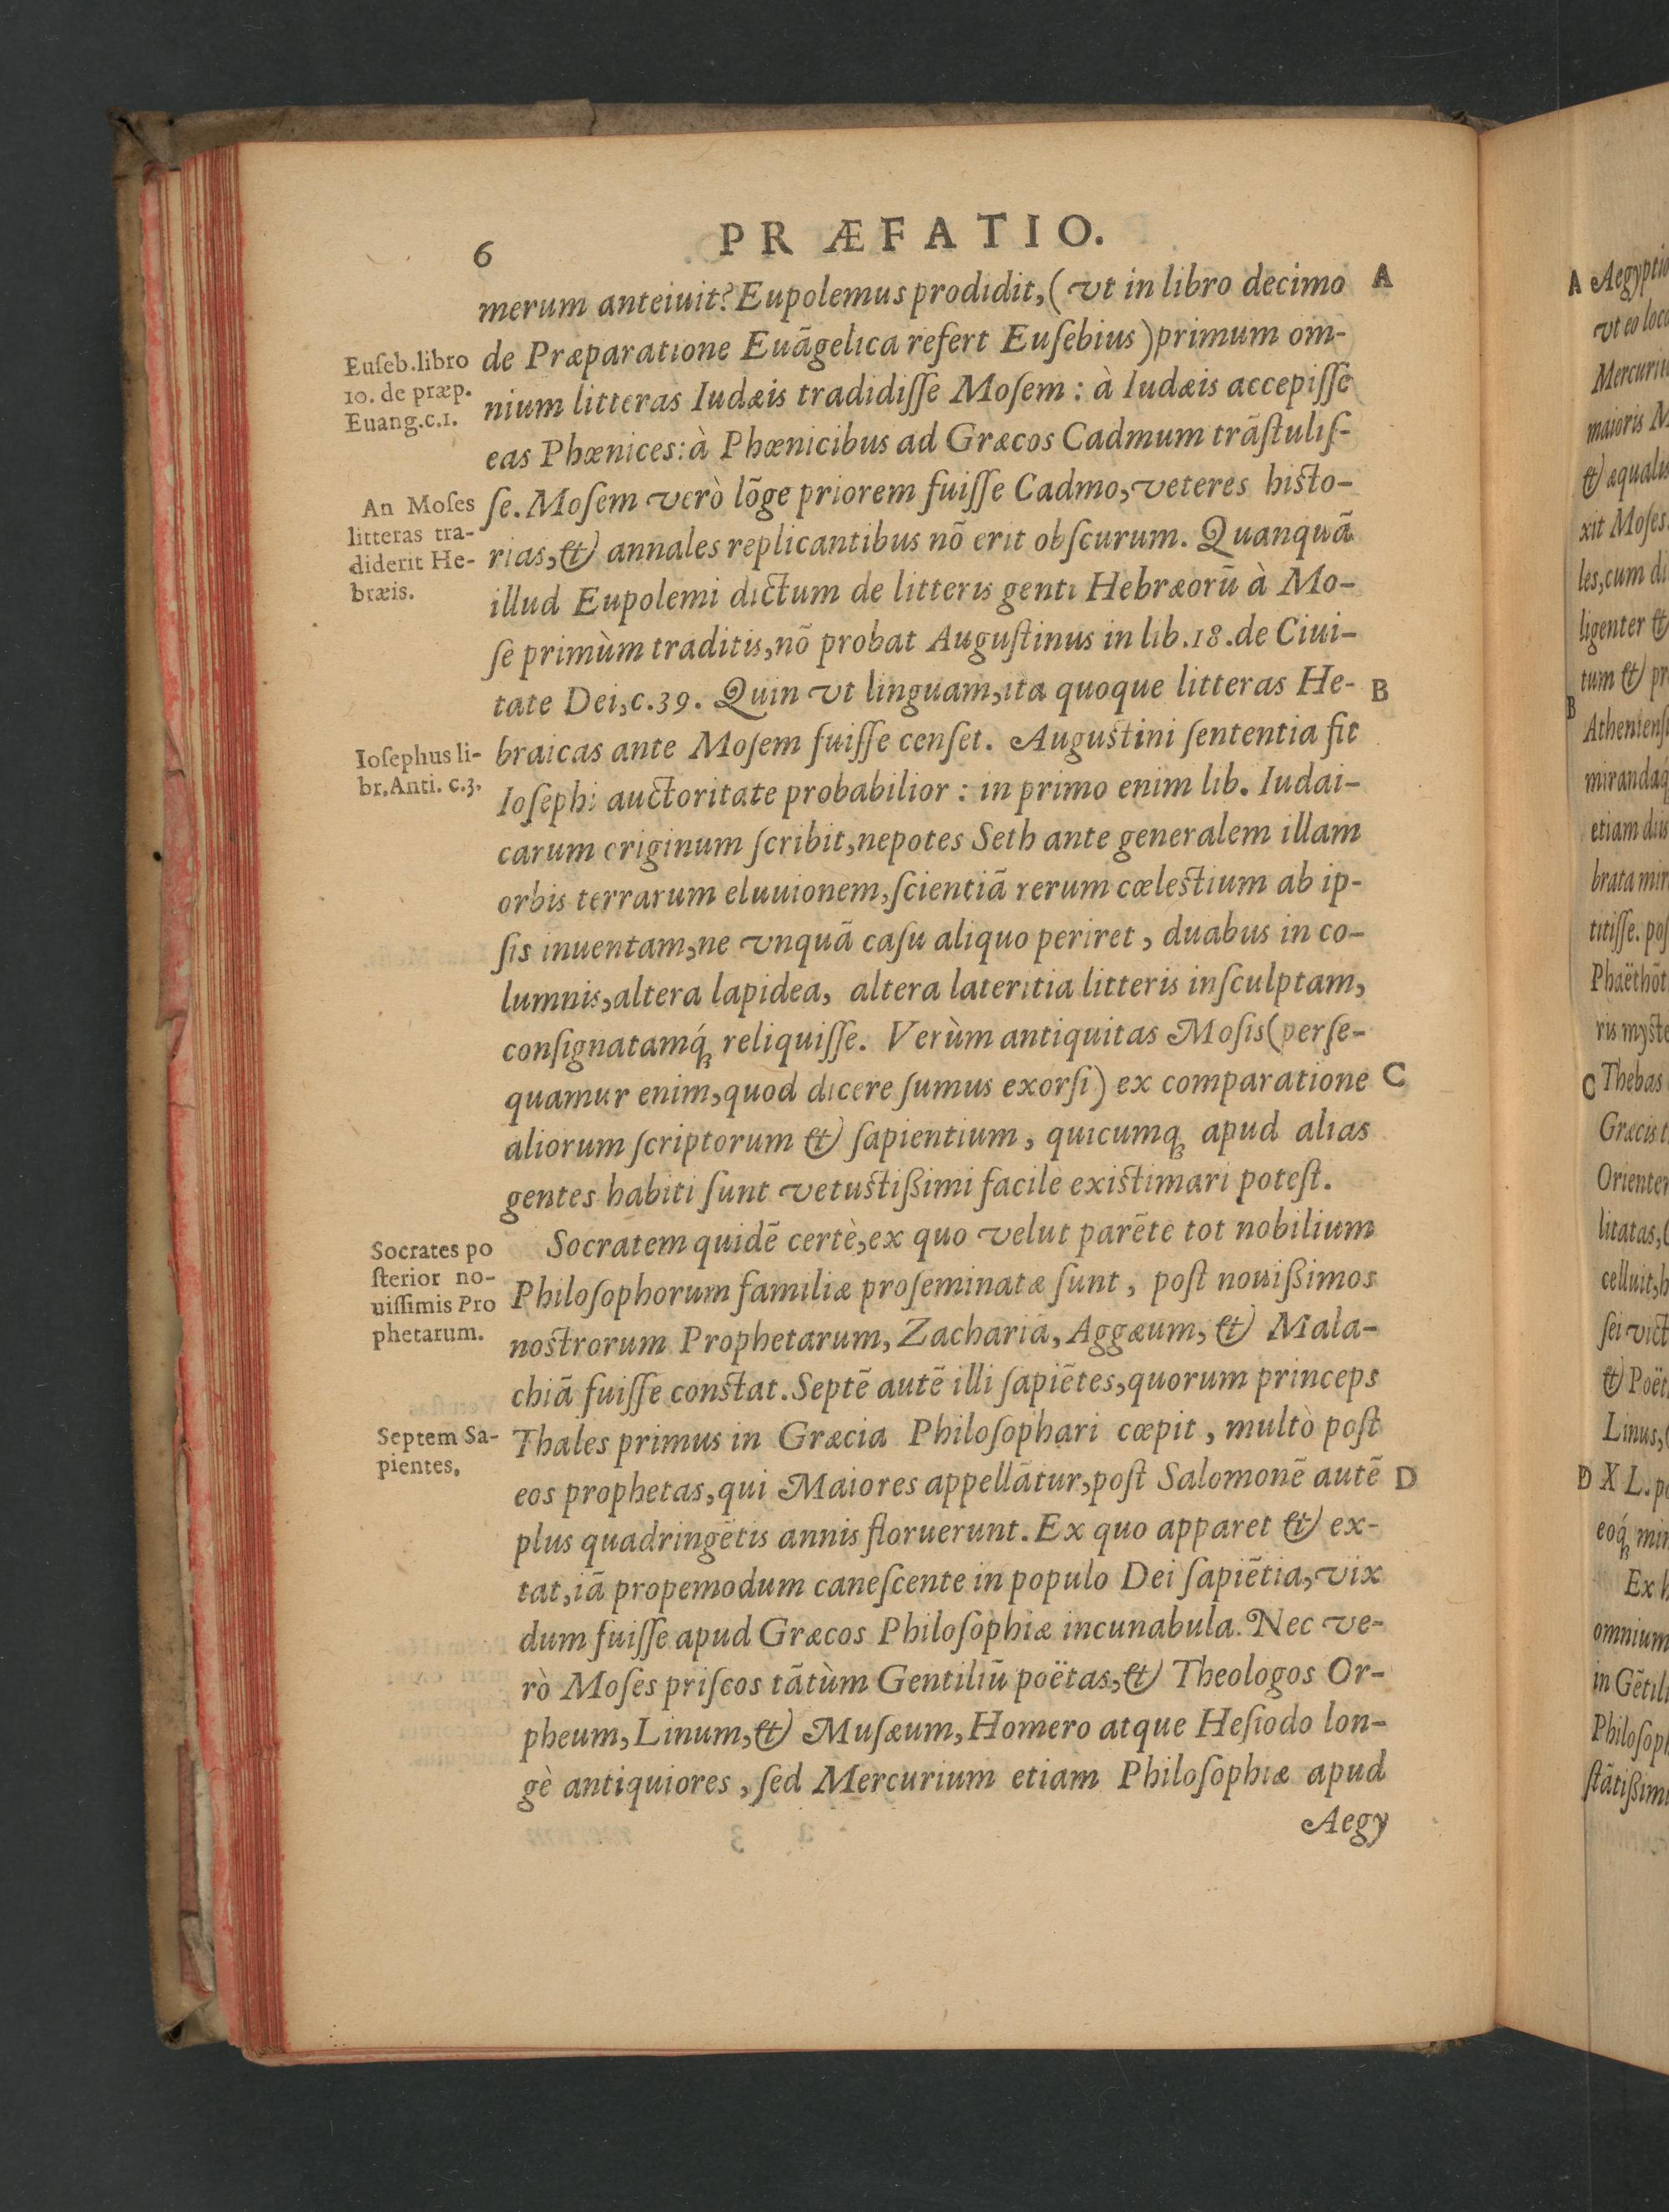 6
PRÆFATIO.
merum anteiuit? Eupolemus prodidit, (vt in libro decimo
A
de Præparatione Euãgelica refert Euſebius) primum om-
nium litteras Iudæis tradidiſſe Moſem : à Iudæis accepiſſe
eas Phœnices: à Phœnicibus ad Græcos Cadmum trãſtuliſ-
ſe. Moſem verò lõge priorem fuiſſe Cadmo, veteres hiſto-
rias, & annales replicantibus nõ erit obſcurum. Quanquã
illud Eupolemi dictum de litteris genti Hebræorũ à Mo-
ſe primùm traditis, nõ probat Auguſtinus in lib. 18. de Ciui-
tate Dei, c. 39. Quin vt linguam, ita quoque litteras He-
B
braicas ante Moſem fuiſſe cenſet. Auguſtini ſententia fit
Ioſephi auctoritate probabilior : in primo enim lib. Iudai-
carum originum ſcribit, nepotes Seth ante generalem illam
orbis terrarum eluuionem, ſcientiã rerum cœleſtium ab ip-
ſis inuentam, ne vnquã caſu aliquo periret, duabus in co-
lumnis, altera lapidea, altera lateritia litteris inſculptam,
conſignatamq́ꝫ reliquiſſe. Verùm antiquitas Moſis (perſe-
quamur enim, quod dicere ſumus exorſi) ex comparatione
C
aliorum ſcriptorum & ſapientium, quicumqꝫ apud alias
gentes habiti ſunt vetuſtißimi facile exiſtimari poteſt.
Socratem quidẽ certè, ex quo velut parẽte tot nobilium
Philoſophorum familiæ proſeminatæ ſunt, poſt nouißimos
noſtrorum Prophetarum, Zachariã, Aggæum, & Mala-
chiã fuiſſe conſtat. Septẽ autẽ illi ſapiẽtes, quorum princeps
Thales primus in Græcia Philoſophari cœpit, multò poſt
eos prophetas, qui Maiores appellãtur, poſt Salomonẽ autẽ
D
plus quadringẽtis annis floruerunt. Ex quo apparet & ex-
tat, iã propemodum caneſcente in populo Dei ſapiẽtia, vix
dum fuiſſe apud Græcos Philoſophiæ incunabula. Nec ve-
rò Moſes priſcos tãtùm Gentiliũ poëtas, & Theologos Or-
pheum, Linum, & Muſæum, Homero atque Heſiodo lon-
gè antiquiores, ſed Mercurium etiam Philoſophiæ apud
Aegy
Euſeb. libro
10. de præp.
Euang. c. 1.
An Moſes
litteras tra-
diderit He-
bræis.
Ioſephus li-
br. Anti. c. 3.
Socrates po
ſterior no-
uiſſimis Pro
phetarum.
Septem Sa-
pientes.
A Aegyptio
vt eo loco
maioris M
xit Moſes
les, cum di
ligenter &
tum & pr
B
Athenienſi
mirandaq́
etiam diis
brata mir
titiſſe. poſ
Phaëthõt
ris myſte
C Thebas
Græcis t
Orienter
litatas, (
celluit, h
ſei vict
& Poët
Linus, (
D XL. p
eoq́ꝫ min
Ex h
omnium
in Gẽtili
Philoſoph
ſtãtißimi